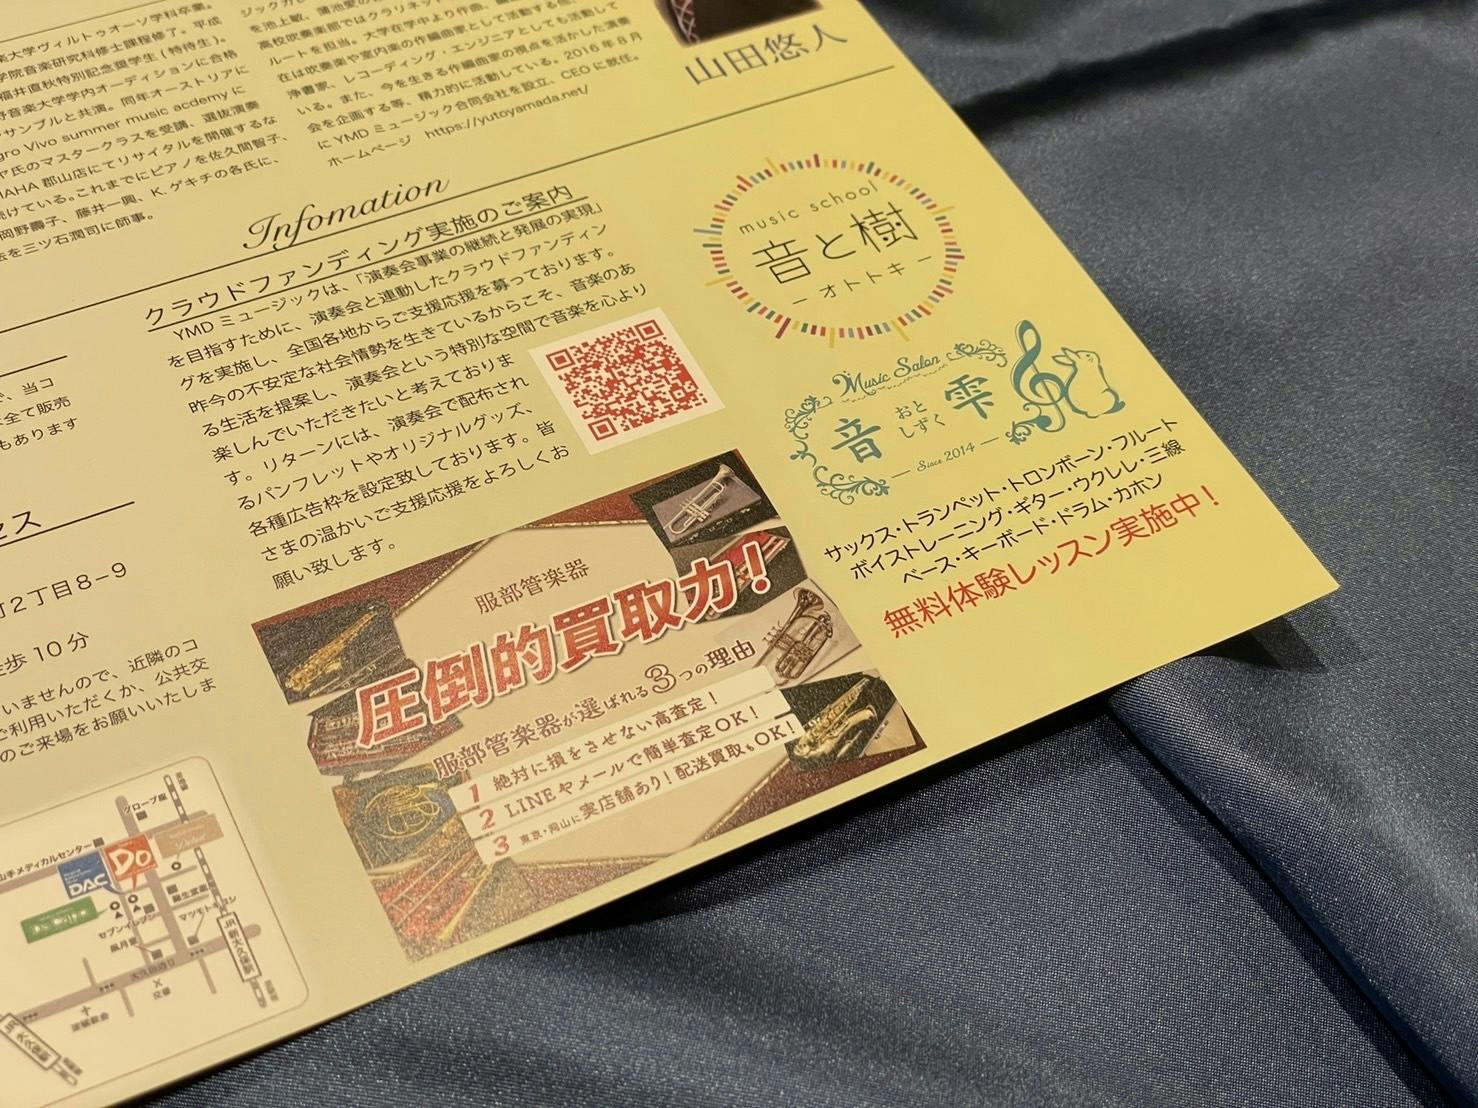 楽大学ヴィルトゥオーソ学科卒業。
学院音楽研究科修士課程修了。平成
福井直秋特別記念奨学生(特待生)。
野音楽大学学内オーディションに合格
サンブルと共演。同年オーストリアに
gro Vivo summer music acdemy に
ヤ氏のマスタークラスを受講、選抜演奏
MAHA 郡山店にてリサイタルを開催するな
続けている。これまでにピアノを佐久間智子、
岡野壽子、藤井一興、K.ゲキチの各氏に、
法を三ツ石潤司に師事。
を池上敏、蒲池愛の
高校吹奏楽部ではクラリネット
ルートを担当。大学在学中より作曲、編
在は吹奏楽や室内楽の作編曲家として活動する他、
浄書家、レコーディング・エンジニアとしても活動して
いる。また、今を生きる作編曲家の視点を活かした演奏
会を企画する等、精力的に活動している。2016年8月
に YMD ミュージック合同会社を設立、CEO に就任。
ホームページ https://yutoyamada.net/
山田悠人
Infomation
クラウドファンディング実施のご案内
YMD ミュージックは、「演奏会事業の継続と発展の実現」
を目指すために、演奏会と連動したクラウドファンディン
グを実施し、全国各地からご支援応援を募っております。
昨今の不安定な社会情勢を生きているからこそ、音楽のあ
る生活を提案し、演奏会という特別な空間で音楽を心より
楽しんでいただきたいと考えておりま
す。リターンには、演奏会で配布され
るパンフレットやオリジナルグッズ、
各種広告枠を設定致しております。皆
さまの温かいご支援応援をよろしくお
願い致します。
music school
音と樹
ーオトトキー
Music Salon
音 おと しずく 雫
Since 2014
サックス・トランペット・トロンボーン・フルート
ボイストレーニング・ギター・ウクレレ・三線
ベース・キーボード・ドラム・カホン
無料体験レッスン実施中！
服部管楽器
圧倒的買取力！
服部管楽器が選ばれる3つの理由
1 絶対に損をさせない高査定！
2 LINEやメールで簡単査定OK！
3 東京・岡山に実店舗あり！配送買取もOK！
、当コ
全て販売
もあります
セス
町2丁目8-9
徒歩 10 分
いませんので、近隣のコ
ご利用いただくか、公共交
のご来場をお願いいたしま
グローブ座
山手メディカルセンター
DAC
Do
セブンイレブン
麻生皮膚
マツモトキヨシ
風月堂
JR新大久保駅
大久保通り
交番
淀橋教会
JR大久保駅